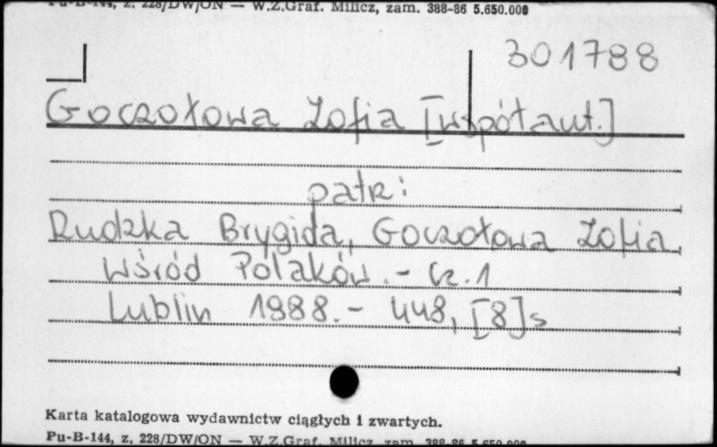 Pu-B-144, z. 228/DW/ON — W.Z.Graf. Milicz, zam. 388-86 5.650.000
301788
Goczołowa Zofia [współaut.]
patrz:
Rudzka Brygida, Goczołowa Zofia
Wśród Polaków. - Cz. 1
Lublin 1988. - 448, [8] s
Karta katalogowa wydawnictw ciągłych i zwartych.
Pu-B-144, z. 228/DW/ON — W.Z.Graf. Milicz, zam. 388-86 5.650.000